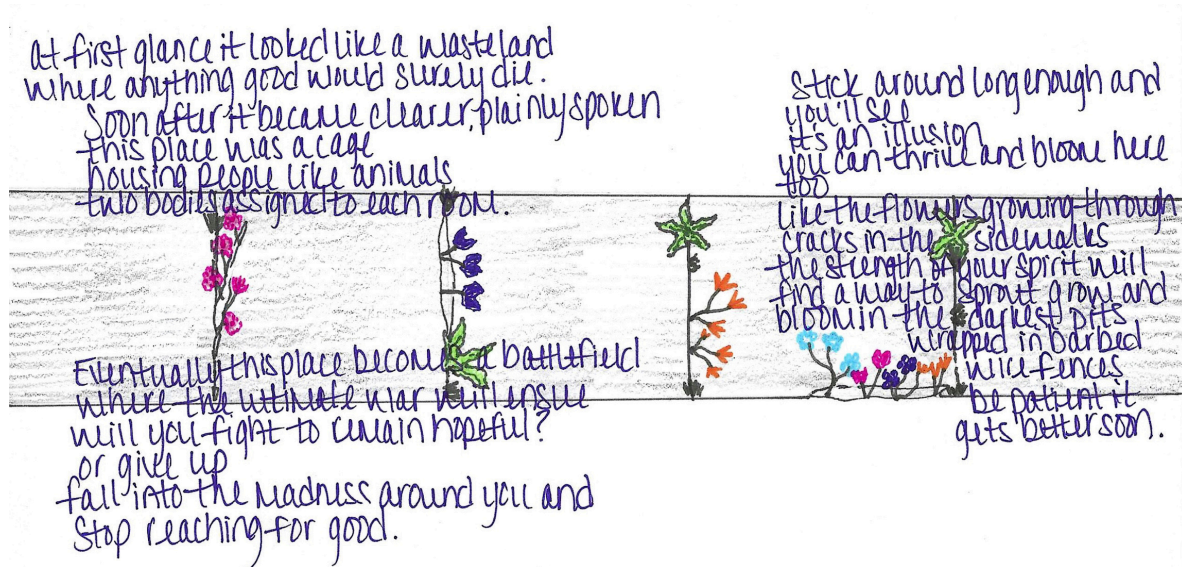 at first glance it looked like a wasteland
where anything good would surely die.
Soon after it became clearer, plainly spoken
this place was a cage
housing people like animals
two bodies assigned to each room.
Eventually this place becomes a battlefield
where the ultimate war will ensue
will you fight to remain hopeful?
or give up
fall into the madness around you and
Stop reaching for good.
Stick around long enough and
you'll see
it's an illusion
you can thrive and bloom here
too
like the flowers growing through
cracks in the sidewalks
the strength of your spirit will
find a way to sprout grow and
bloom in the darkest pits
wrapped in barbed
wire fences
be patient it
gets better soon.